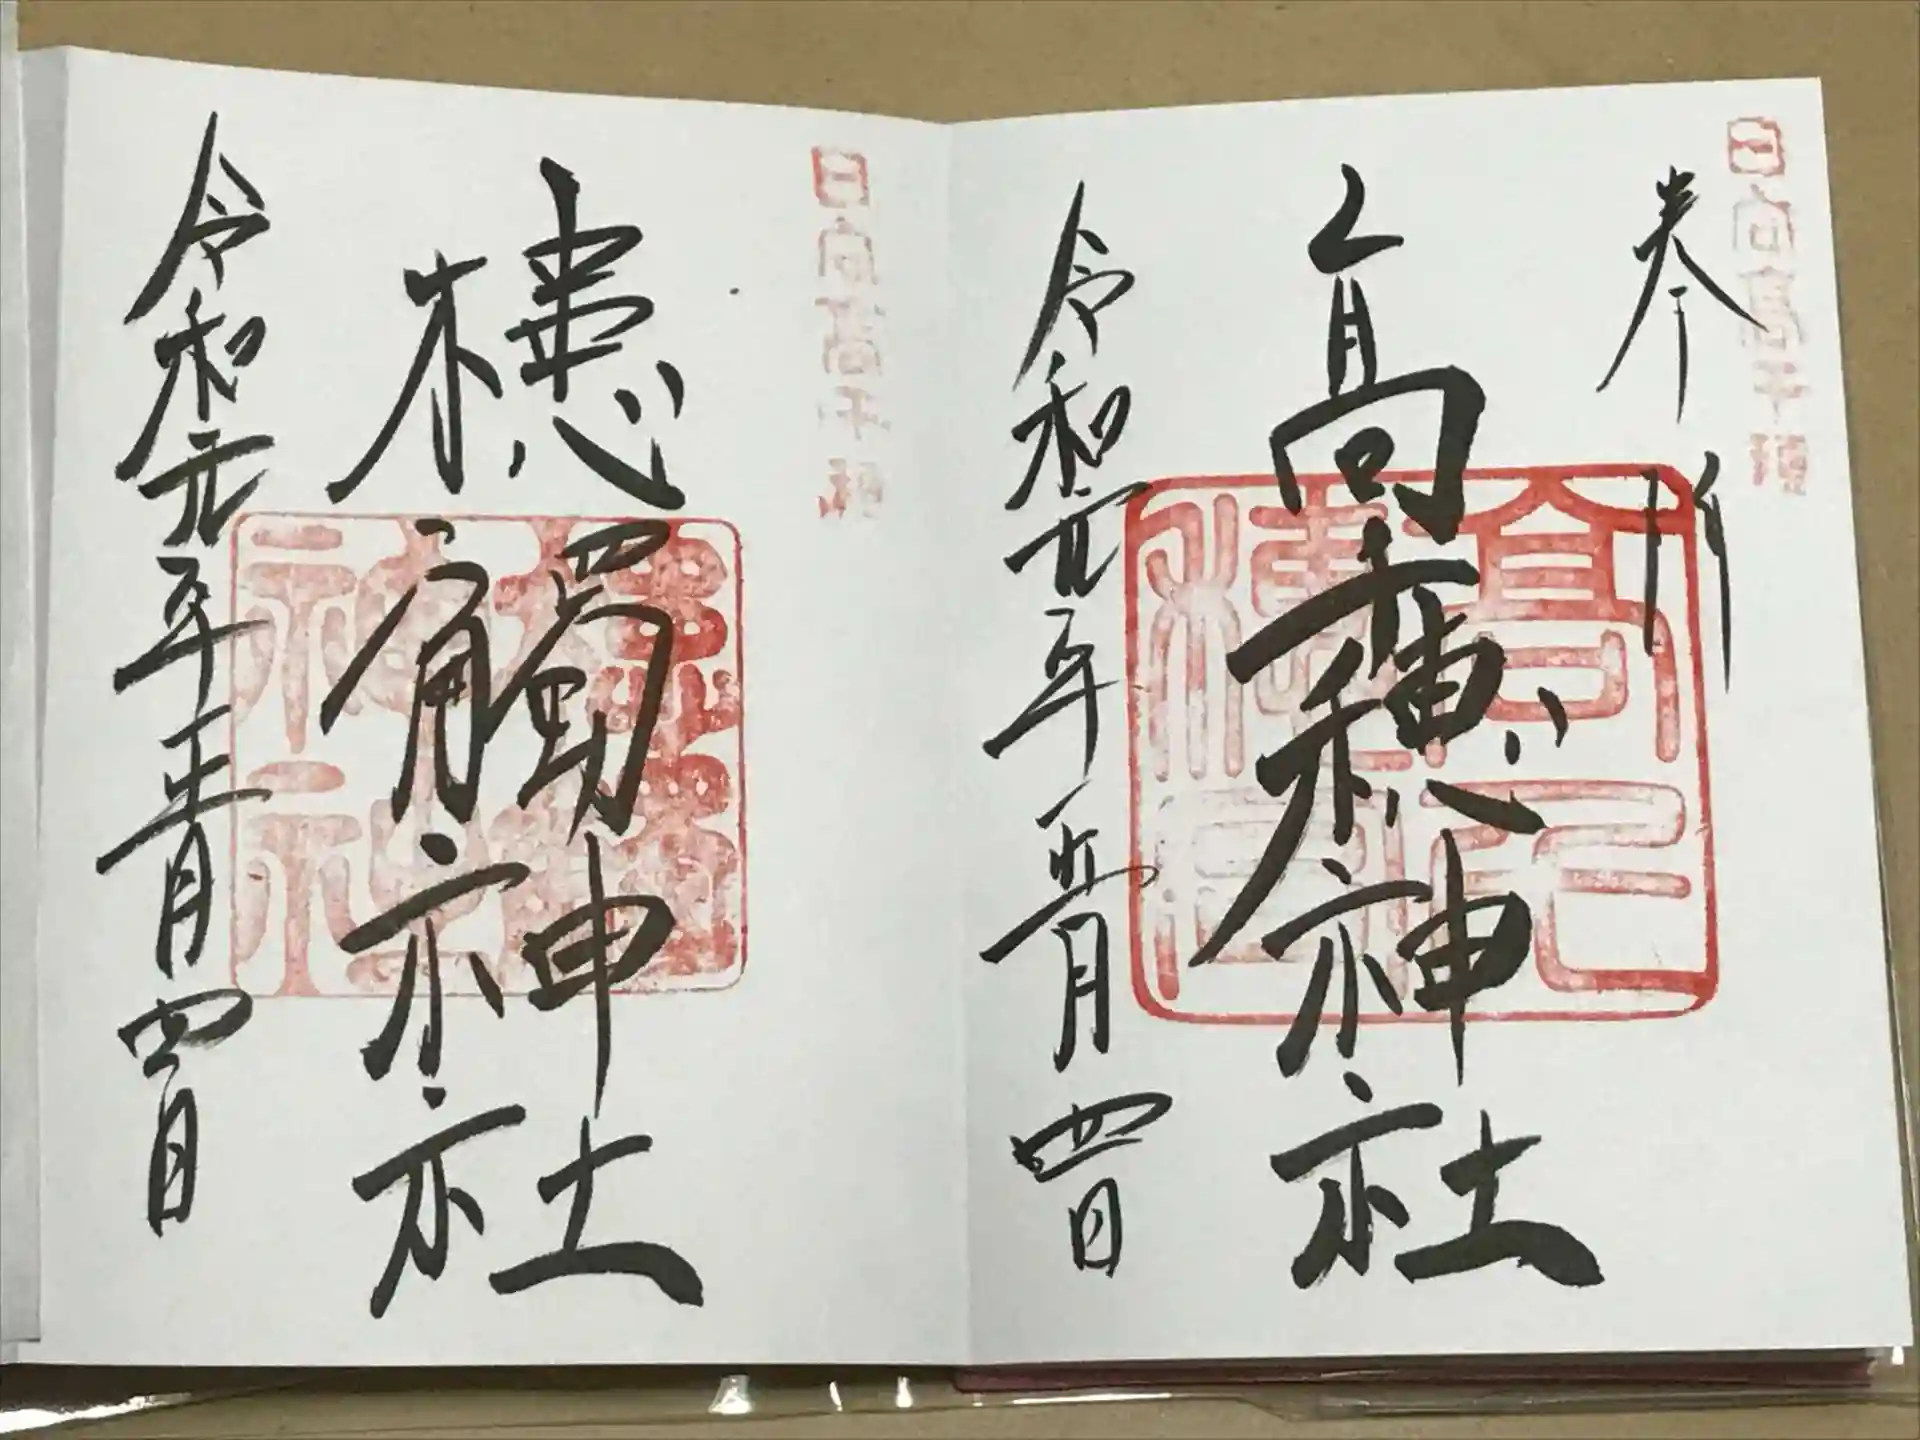 日向高千穂
奉拝
高千穂神社
令和元年五月四日
日向高千穂
槵觸神社
令和元年五月四日